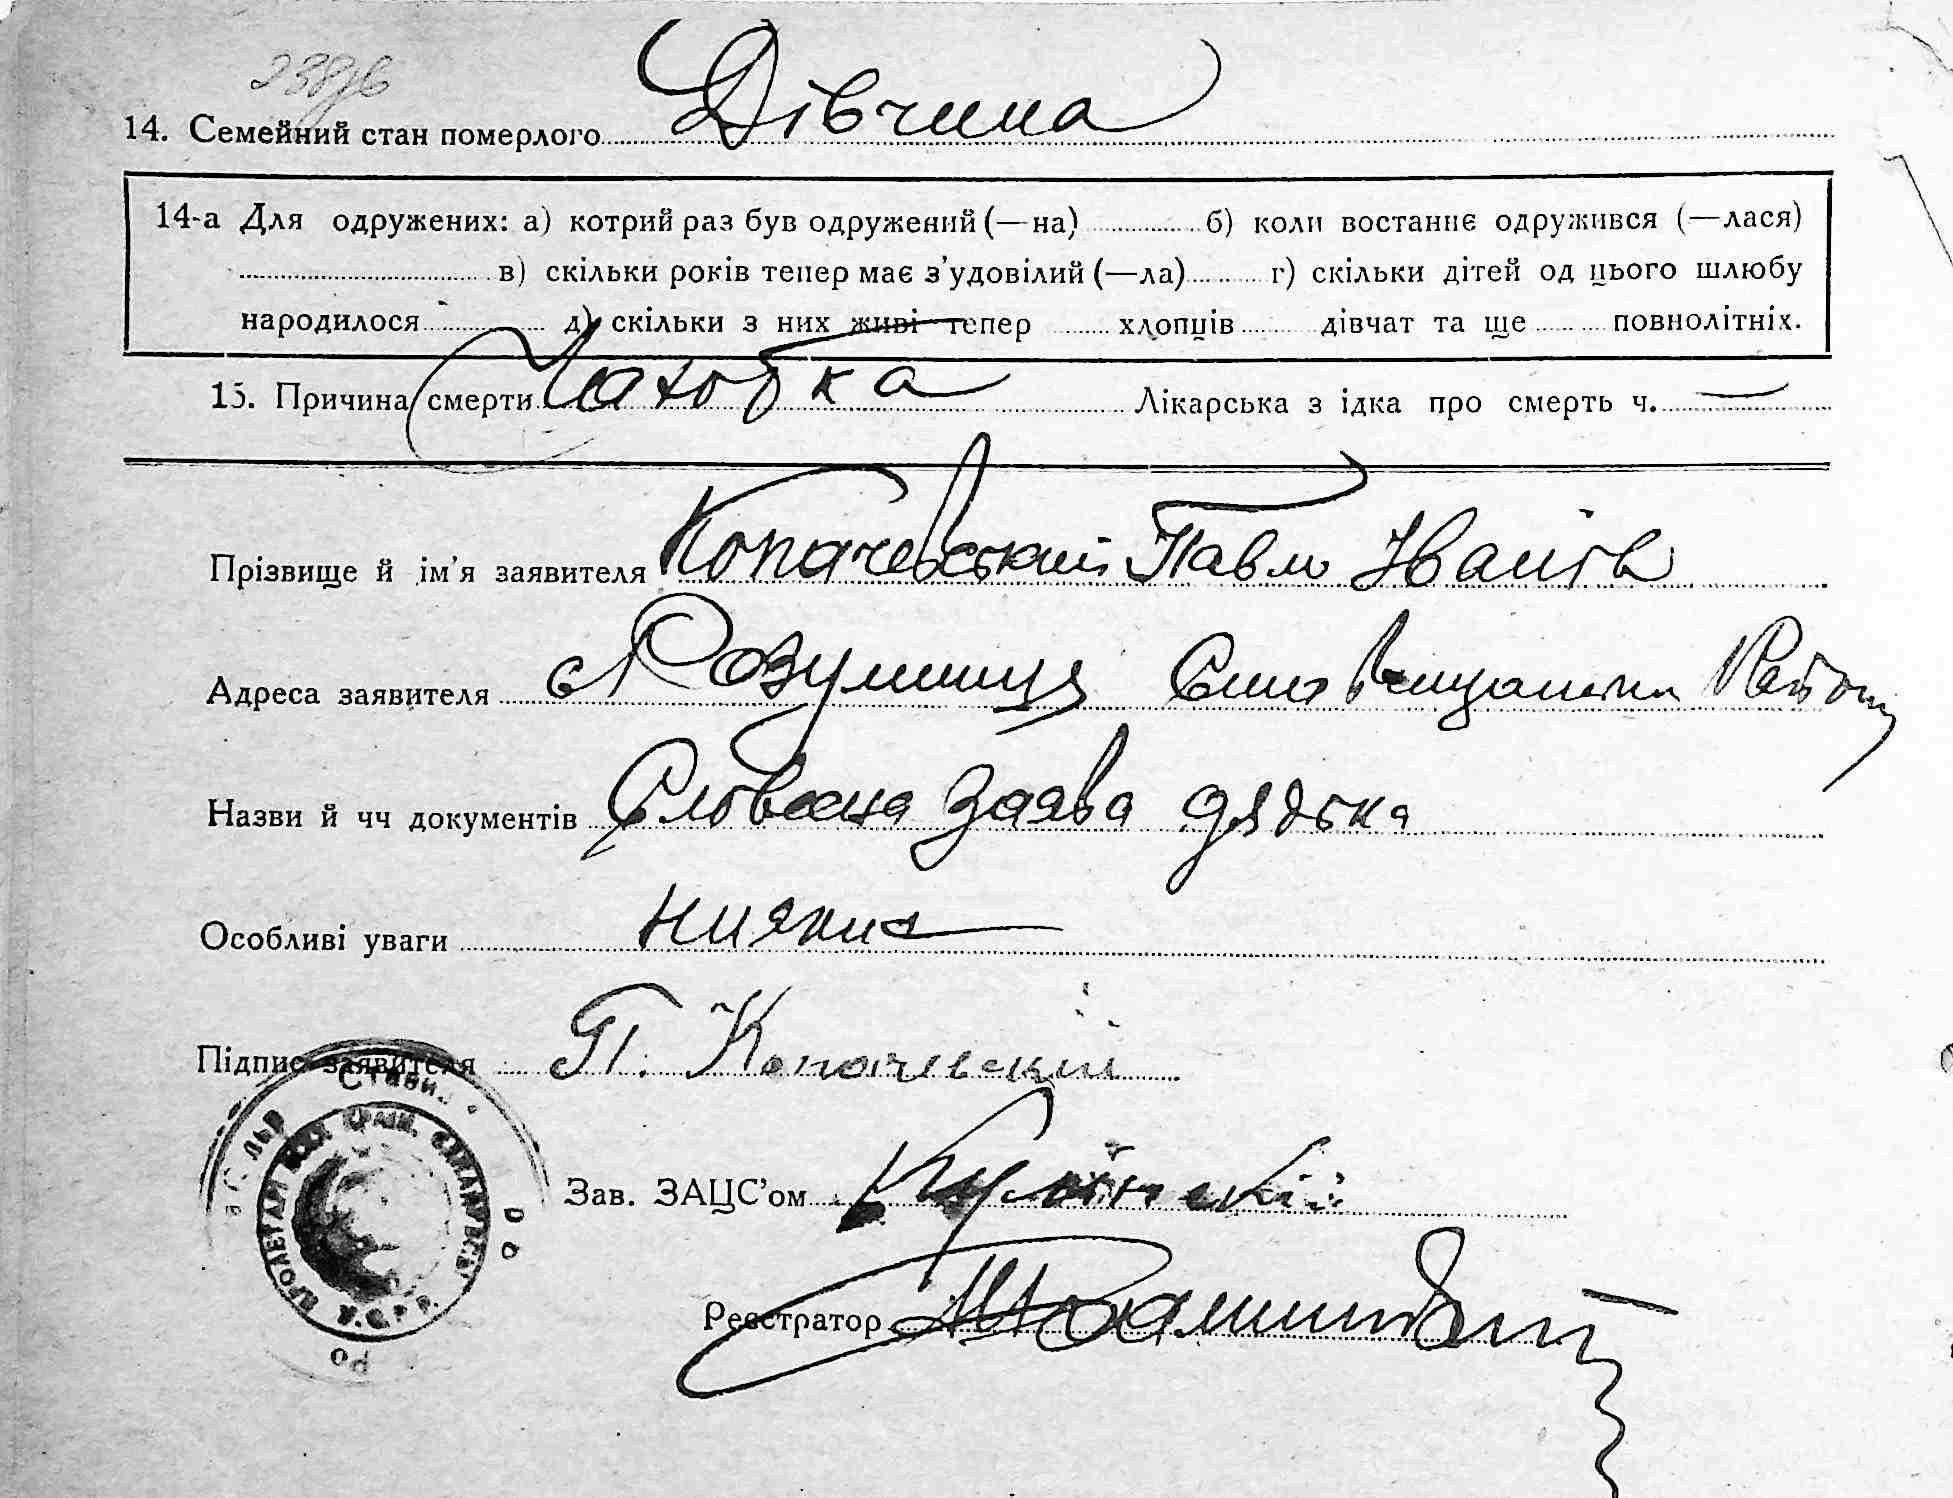 238зв
14. Семейний стан померлого Дівчина
14-а Для одружених: а) котрий раз був одружений (—на) б) коли востаннє одружився (—лася)
в) скільки років тепер має з’удовілий (—ла) г) скільки дітей од цього шлюбу
народилося д) скільки з них живі тепер хлопців дівчат та ще повнолітніх.
15. Причина смерти Чахотка Лікарська з ідка про смерть ч. —
Прізвище й ім’я заявителя Копачевський Павло Іванів
Адреса заявителя с Розумниця Району
Назви й чч документів Словесна Заява дядька
Особливі уваги ніяких
Підпис заявителя П. Копачевский
Зав. ЗАЦС’ом
Реєстратор